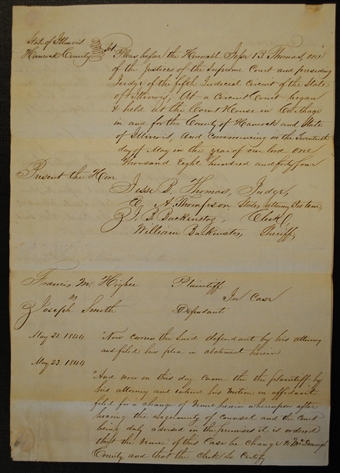 State of Illinois
Hancock County
Pleas before the Honorable Jesse B Thomas, one
of the Justices of the Supreme Court and presiding
Judge of the fifth Judicial Circuit of the State
of Illinois, At a Circuit Court began
& held at the Court House in Carthage
in and for the County of Hancock and State
of Illinois, and commencing on the
day of May in the year of our Lord one
thousand Eight hundred and forty four
Present the Hon
Jesse B Thomas, Judge,
Thompson States Attorney
J. B. Backenstos, Clerk
William Backenstos, Sheriff
Francis M. Higbee Plaintiff
vs In Case
Joseph Smith Defendant
May 21 1844 Now comes the said defendant by his attorney
and files his plea in abatement herein
May 23. 1844
And now on this day came the the plaintiff by
his attorney and enters his motion on affidavit
filed for a change of Venue herein whereupon after
hearing the arguments of Counsel and the Court
being duly advised in the premises it is ordered
that the venue of this Case be change to McDonough
County and that the clerk so Certify